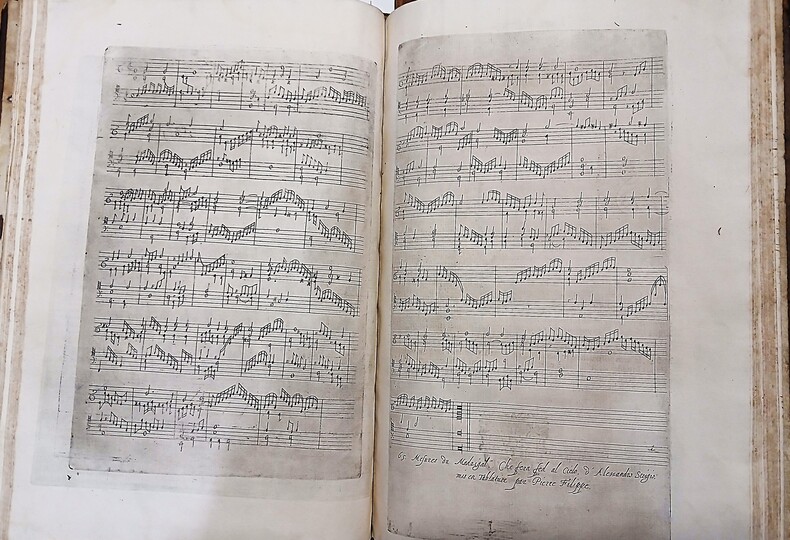 65 Mesures du Madrigal Che fera fed al Cielo, d' Alessandro
mis en Tablature par Pierre Filippe